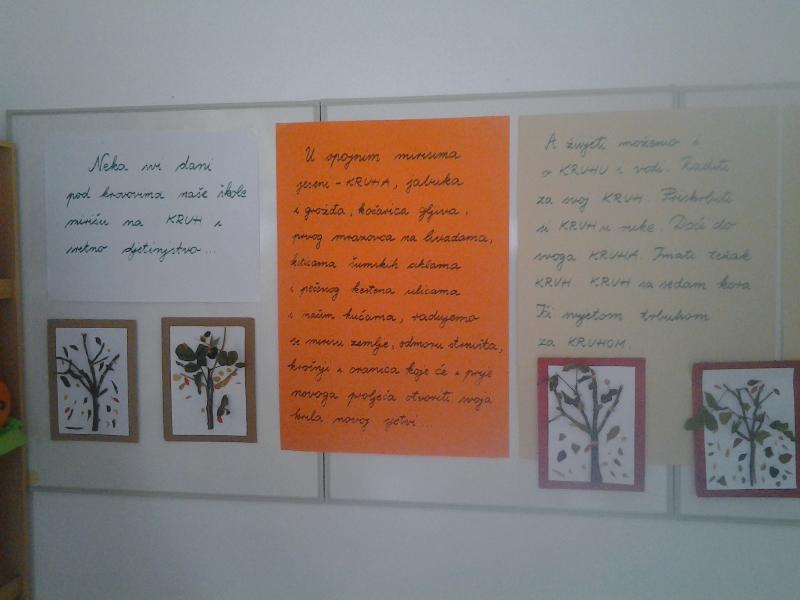 Neka svi dani
pod krovovima naše škole
mirišu na KRUH i
sretno djetinjstvo...
U opojnim mirisima
jeseni - KRUHA, jabuka
i grožđa, košarica gljiva,
prvog mrazovca na livadama,
kiticama šumskih ciklama
i pečenog kestena ulicama
i našim kućama, radujemo
se mirisu zemlje, odmoru strništa,
krošnji i oranica koje će i prije
novoga proljeća otvoriti svoja
krila novoj žetvi...
A živjeti možemo i
o KRUHU i vodi. Raditi
za svoj KRUH. Priskrbiti
si KRUH u ruke. Doći do
svoga KRUHA. Imati težak
KRUH. KRUH sa sedam kora
Ići svijetom trbuhom
za KRUHOM.